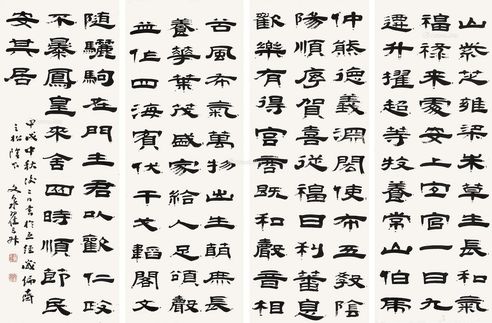 山紫芝雍梁朱草生長和氣
福祿來處安上宜官一日九
遷升擢超等牧養常山伯虎
仲熊德義淵閎使布五穀陰
陽順序賀喜從福日利蕃息
歡樂有得宮商既和聲音相
谷風布氣萬物出生萌庶長
養華葉茂盛家給人足頌聲
並作四海賓伏干戈韜閣文
隨驪駒在門主君以歡仁政
不暴鳳皇來舍四時順節民
安其居
甲戌中秋後二日書於
之松陰下